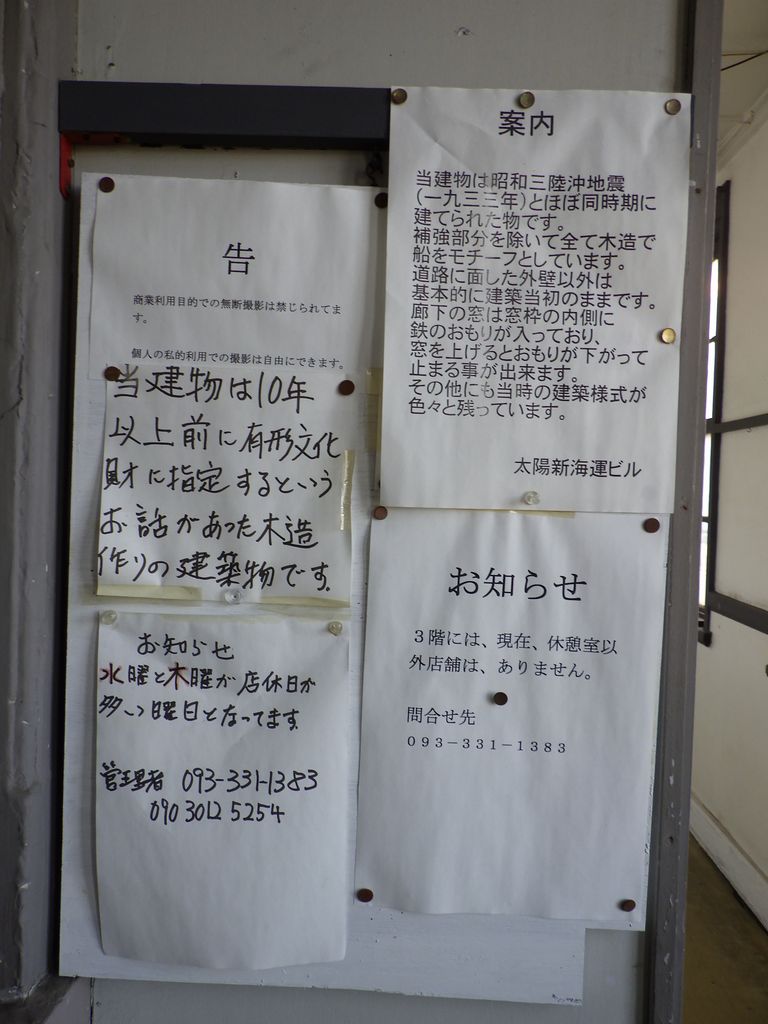 告
商業利用目的での無断撮影は禁じられてま
す。
個人の私的利用での撮影は自由にできます。
当建物は10年
以上前に有形文化
財に指定するという
お話があった木造
作りの建築物です。
お知らせ
水曜と木曜が店休日が
多い曜日となってます。
管理者 093-331-1383
090 3012 5254
案内
当建物は昭和三陸沖地震
(一九三三年)とほぼ同時期に
建てられた物です。
補強部分を除いて全て木造で
船をモチーフとしています。
道路に面した外壁以外は
基本的に建築当初のままです。
廊下の窓は窓枠の内側に
鉄のおもりが入っており、
窓を上げるとおもりが下がって
止まる事が出来ます。
その他にも当時の建築様式が
色々と残っています。
太陽新海運ビル
お知らせ
３階には、現在、休憩室以
外店舗は、ありません。
問合せ先
０９３－３３１－１３８３